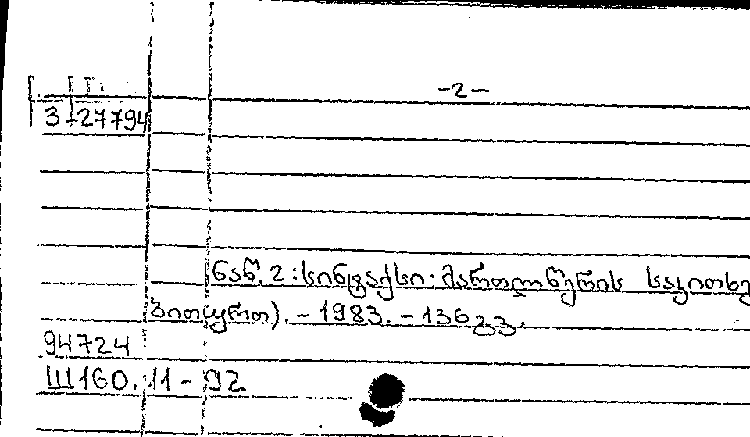 -2-
3-27794
ნაწ. 2: სინტაქსი. მართლწერის საკითხე
ბითურთ). - 1983. - 136გვ.
94724
Ш160.11-92